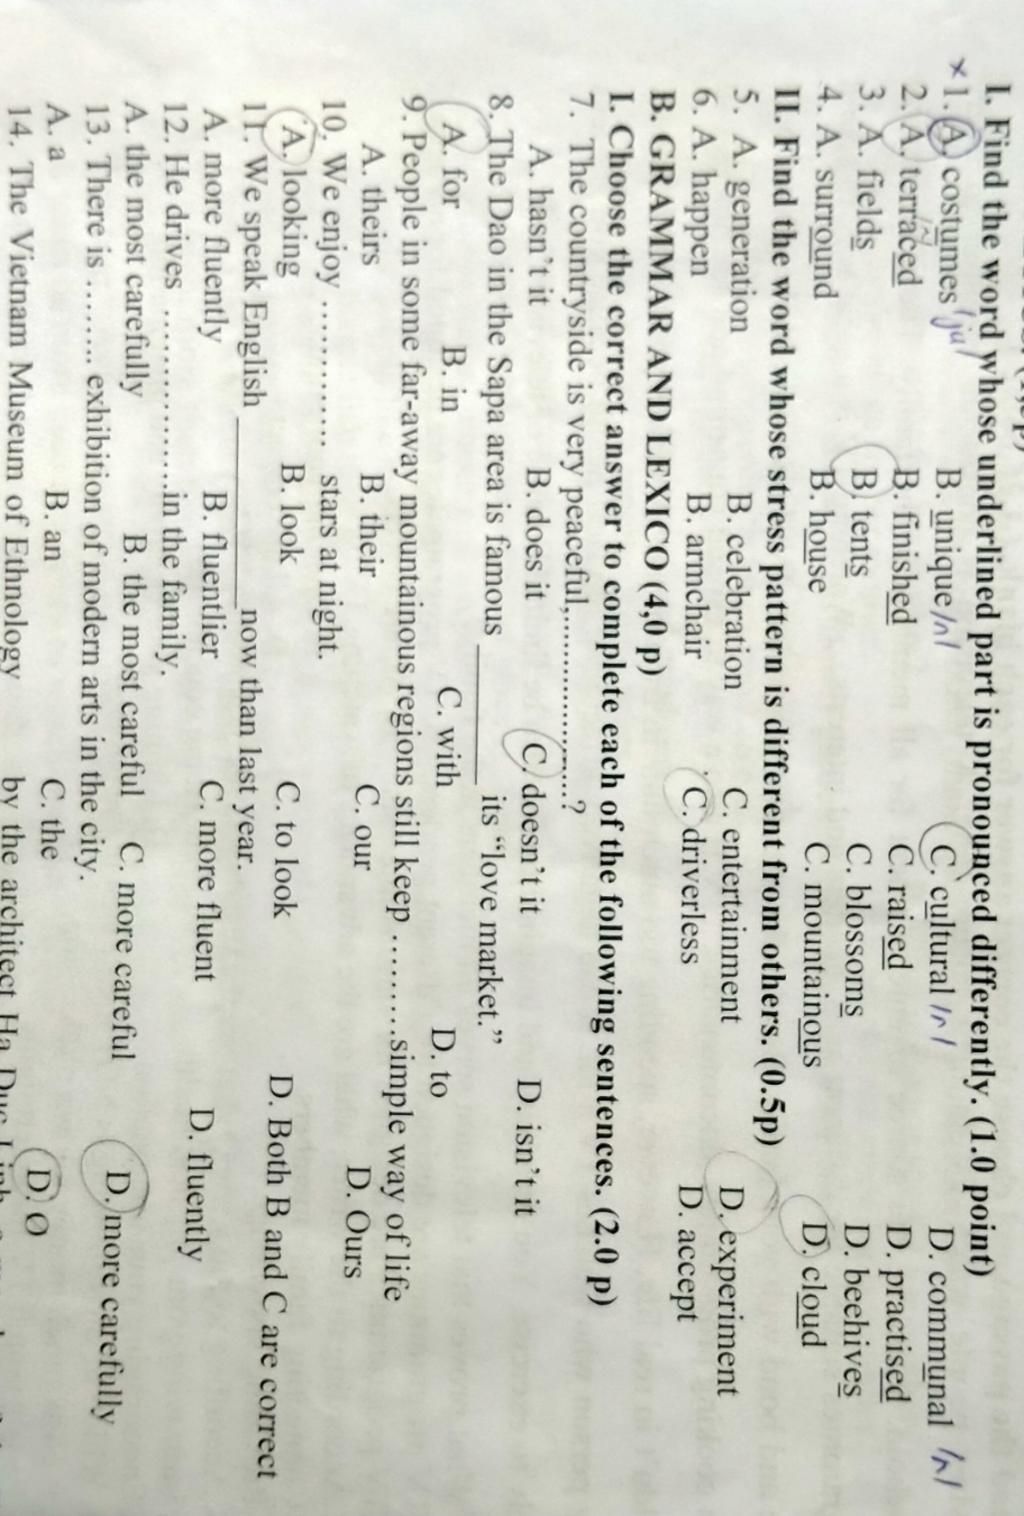 I. Find the word whose underlined part is pronounced differently. (1.0 point)
x1. A. costumes /ju/ B. unique /ʌ/ C. cultural /ʌ/ D. communal /ʌ/
2. A. terraced B. finished C. raised D. practised
3. A. fields B. tents C. blossoms D. beehives
4. A. surround B. house C. mountainous D. cloud
II. Find the word whose stress pattern is different from others. (0.5p)
5. A. generation B. celebration C. entertainment D. experiment
6. A. happen B. armchair C. driverless D. accept
B. GRAMMAR AND LEXICO (4,0 p)
I. Choose the correct answer to complete each of the following sentences. (2.0 p)
7. The countryside is very peaceful,........................?
A. hasn't it B. does it C. doesn't it D. isn't it
8. The Dao in the Sapa area is famous ________ its “love market.”
A. for B. in C. with D. to
9. People in some far-away mountainous regions still keep .........simple way of life
A. theirs B. their C. our D. Ours
10. We enjoy ............... stars at night.
A. looking B. look C. to look D. Both B and C are correct
11. We speak English ____________ now than last year.
A. more fluently B. fluentlier C. more fluent D. fluently
12. He drives ..................in the family.
A. the most carefully B. the most careful C. more careful D. more carefully
13. There is ........ exhibition of modern arts in the city.
A. a B. an C. the D. Ø
14. The Vietnam Museum of Ethnology by the architect Ha Duc